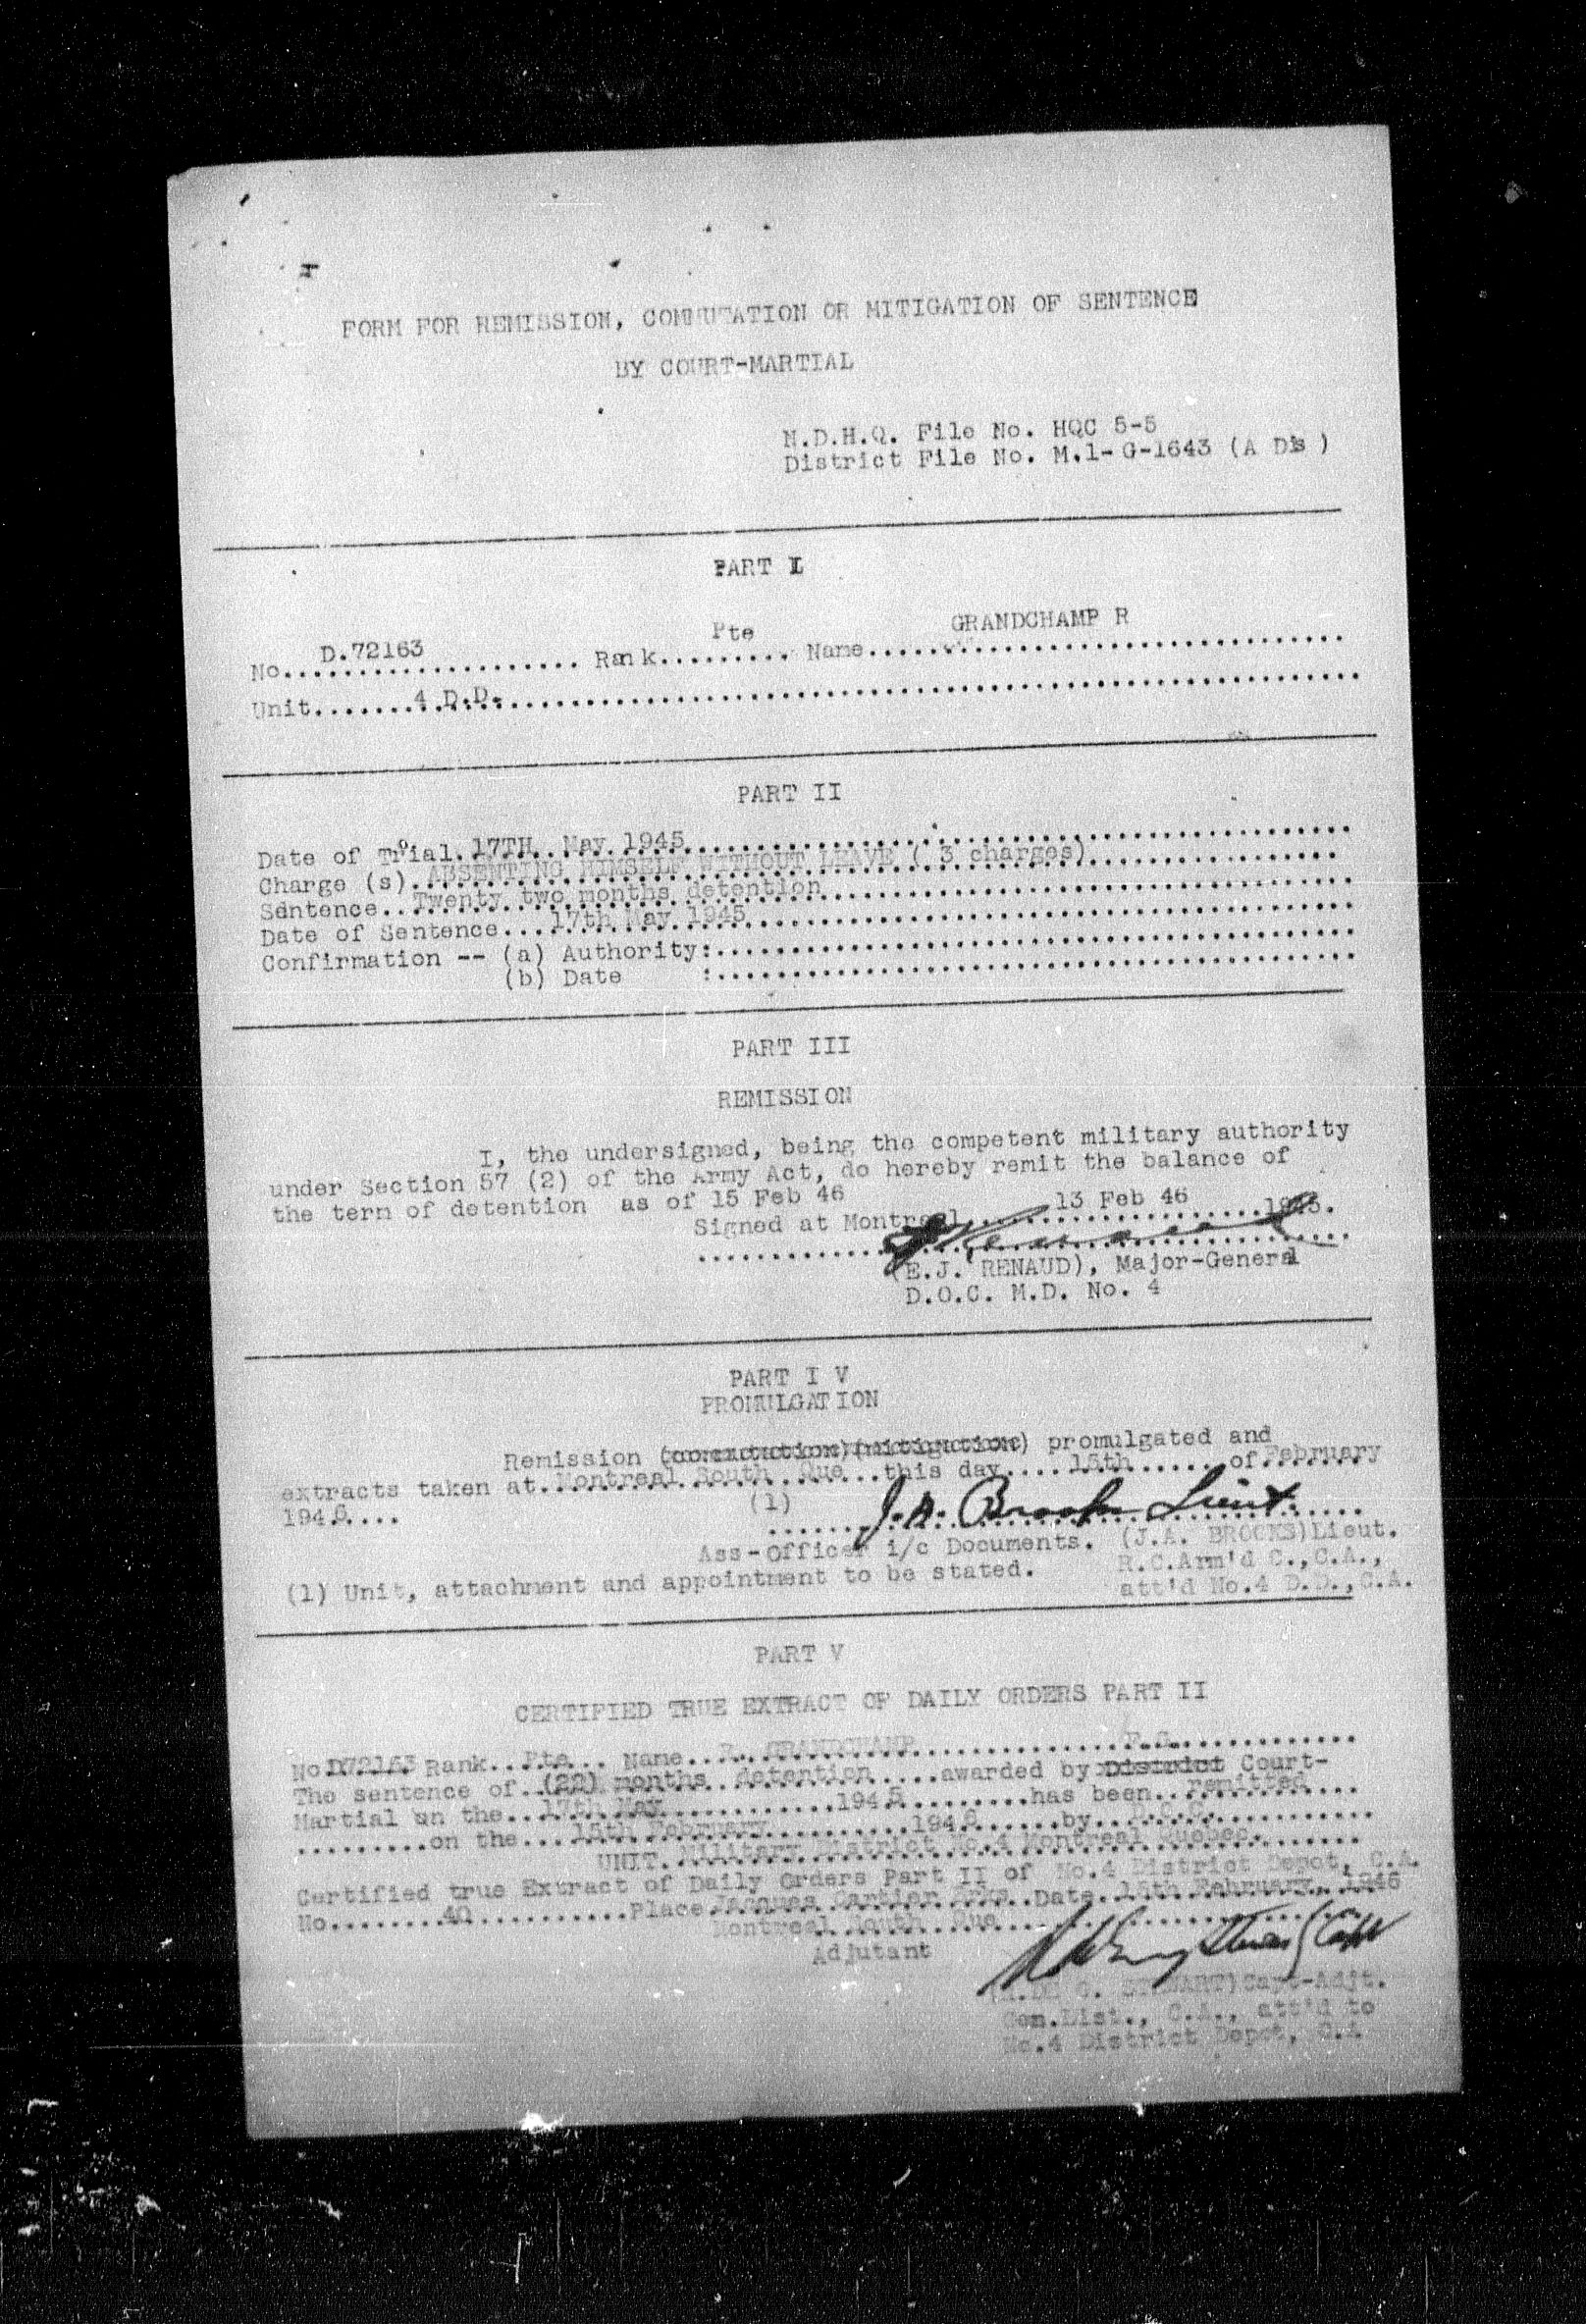 FORM FOR REMISSION, COMMUTATION OR MITIGATION OF SENTENCE
BY COURT-MARTIAL
N.D.H.Q. File No. HQC 5-5
District File No. M.1- G-1643 (A Ds )
PART I
No....D.72163.... Rank....Pte.... Name....GRANDCHAMP R....
Unit.......4 D.D...........
PART II
Date of Trial.17TH..May 1945..........
Charge (s).ABSENTING HIMSELF WITHOUT LEAVE ( 3 charges)..........
Sentence..Twenty two months detention..........
Date of Sentence....17th May 1945..........
Confirmation -- (a) Authority:..........
(b) Date :..........
PART III
REMISSION
I, the undersigned, being the competent military authority
under Section 57 (2) of the Army Act, do hereby remit the balance of
the term of detention as of 15 Feb 46
Signed at Montreal....13 Feb 46..........
(E.J. RENAUD), Major-General
D.O.C. M.D. No. 4
PART I V
PROMULGATION
Remission (commutation)(mitigation) promulgated and
extracts taken at.Montreal South..Que...this day....15th......of February
1946....
(1) J.A. Brooks Lieut.
Ass-Officer i/c Documents. (J.A. BROOKS)Lieut.
R.C.Arm'd C.,C.A.,
(1) Unit, attachment and appointment to be stated.
att'd No.4 D.D.,C.A.
PART V
CERTIFIED TRUE EXTRACT OF DAILY ORDERS PART II
No.D72163 Rank..Pte... Name...R. GRANDCHAMP..........
The sentence of .(22) months detention.....awarded by District Court-
Martial on the...17th May..........1945........has been..remitted....
.........on the...15th February..........1946......by...D.O.C...........
UNIT.Military District No.4 Montreal Quebec.........
Certified true Extract of Daily Orders Part II of No.4 District Depot, C.A.
No........40...........Place Jacques Cartier Brks..Date..15th February, 1946
Montreal South..Que....
Adjutant
STEWART)Capt-Adjt.
Gen.List., C.A., att'd to
No.4 District Depot, C.A